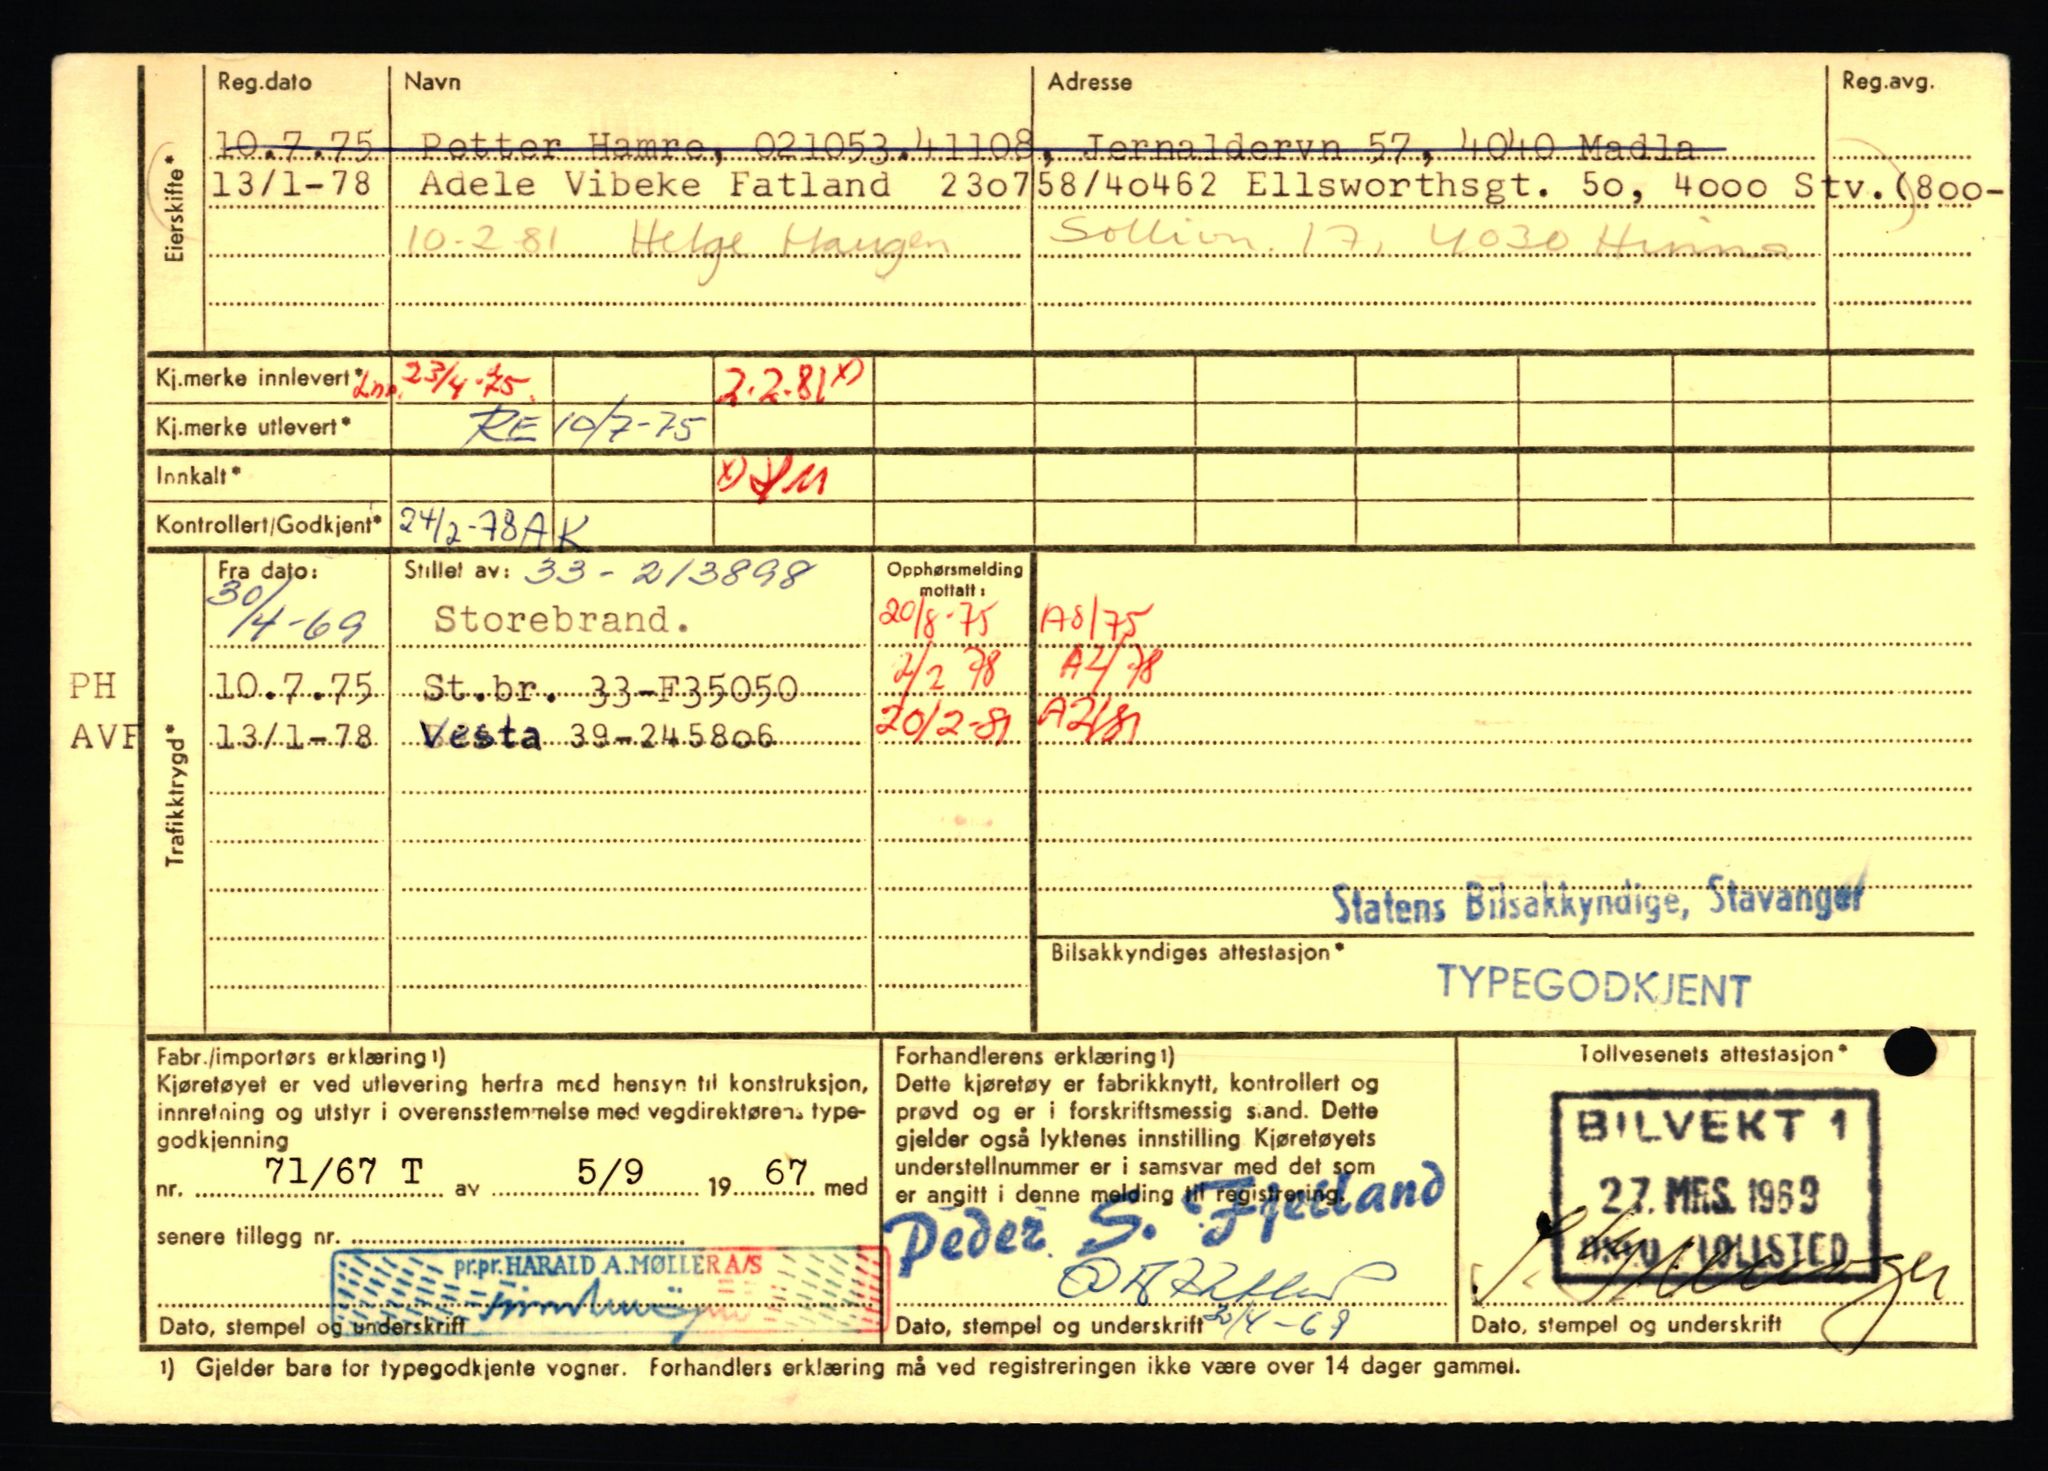 Reg.dato Navn Adresse Reg.avg.
Eierskifte*
10.7.75 Petter Hamre, 021053.41108, Jernaldervn 57, 4040 Madla
13/1-78 Adele Vibeke Fatland 230758/40462 Ellsworthsgt. 50, 4000 Stv.(800-
10-2-81 Helge Haugen Sollivn. 17, 4030 Hinna
Kj.merke innlevert* Inn. 23/4-75. 2.2.81 x)
Kj.merke utlevert* RE 10/7-75
Innkalt* x)
Kontrollert/Godkjent* 24/2-78 AK
Fra dato: Stillet av: 33-213898 Opphørsmelding mottatt:
Trafikktrygd*
30/4-69 Storebrand. 20/8-75 A8/75
PH 10.7.75 St.br. 33-F35050 2/2 78 A2/78
AVF 13/1-78 Vesta 39-245806 20/2-81 A2/81
Statens Bilsakkyndige, Stavanger
Bilsakkyndiges attestasjon*
TYPEGODKJENT
Fabr./importørs erklæring 1)
Kjøretøyet er ved utlevering herfra med hensyn til konstruksjon,
innretning og utstyr i overensstemmelse med vegdirektørens type-
godkjenning
nr. 71/67 T av 5/9 19 67 med
senere tillegg nr.
pr.pr. HARALD A. MØLLER A/S
Dato, stempel og underskrift
Forhandlerens erklæring 1)
Dette kjøretøy er fabrikknytt, kontrollert og
prøvd og er i forskriftsmessig stand. Dette
gjelder også lyktenes innstilling Kjøretøyets
understellnummer er i samsvar med det som
er angitt i denne melding til registrering.
Peder S. Fjelland
Dato, stempel og underskrift 30/4-69
Tollvesenets attestasjon*
BILVEKT 1
27. MRS. 1969
Dato, stempel og underskrift
1) Gjelder bare for typegodkjente vogner. Forhandlers erklæring må ved registreringen ikke være over 14 dager gammel.